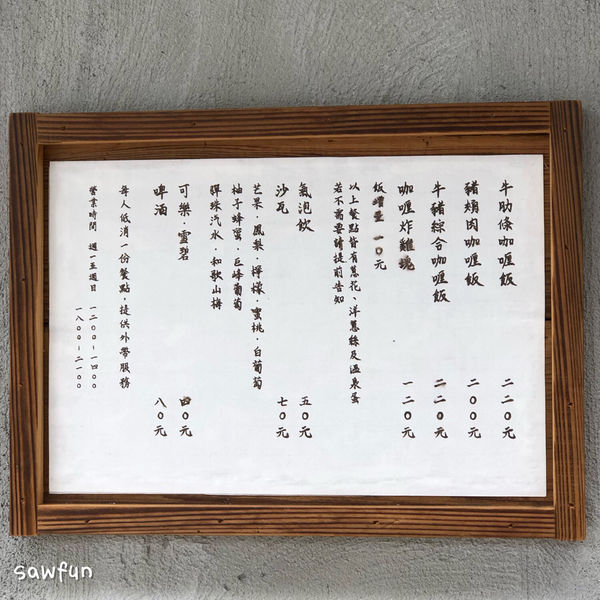 牛肋條咖喱飯 二二〇元
豬頰肉咖喱飯 二〇〇元
牛豬綜合咖喱飯 二二〇元
咖喱炸雞塊 一二〇元
飯增量 一〇元
以上餐點皆有蔥花、洋蔥絲及溫泉蛋
若不需要請提前告知
氣泡飲 五〇元
沙瓦 七〇元
芒果·鳳梨·檸檬·蜜桃·白葡萄
柚子蜂蜜·巨峰葡萄
彈珠汽水·和歌山梅
可樂·雪碧 四〇元
啤酒 八〇元
每人低消一份餐點·提供外帶服務
營業時間 週一至週日 一一二〇〇-一四〇〇
一八〇〇-二一〇〇
sawfun